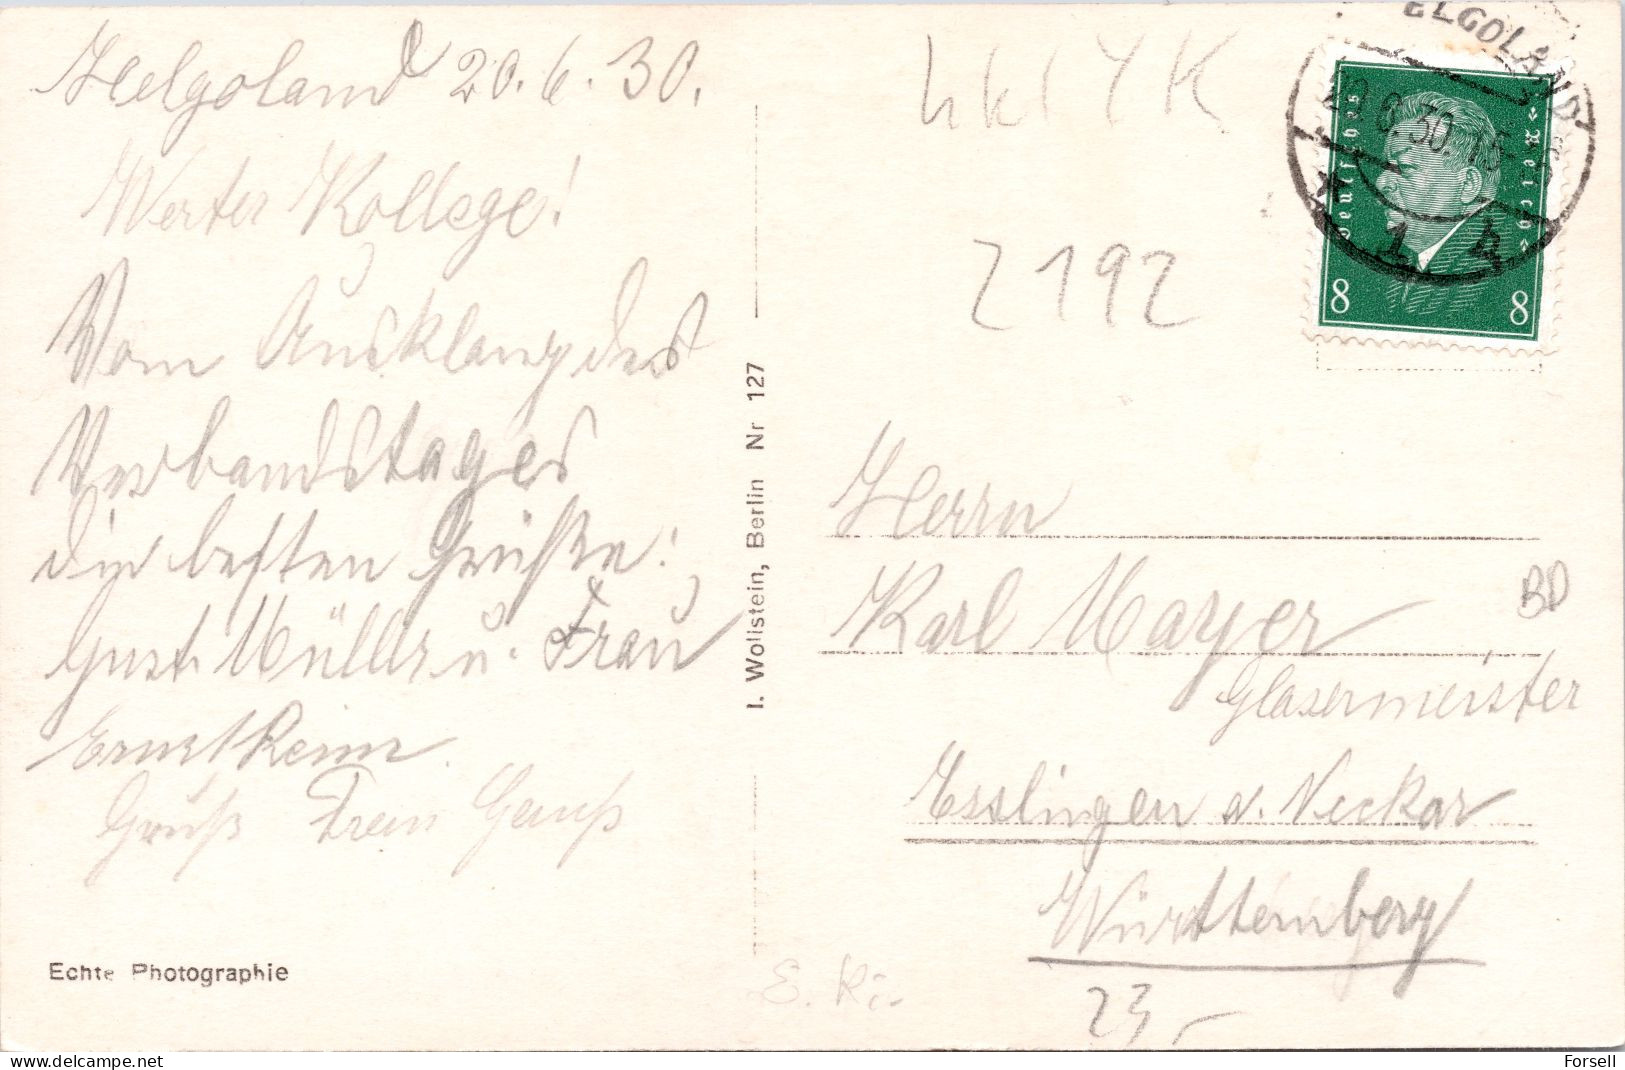 Helgoland 20.6.30.
Werter Kollege!
Vom Ausklang des
Verbandstages
die besten Grüße:
Gust. Müller u. Frau
Ernst Renn
Gruß Frau
Echte Photographie
I. Wollstein, Berlin Nr 127
2192
ELGOLAND
20.6.30.15-16
* 1 h
Deutsches Reich
8 8
Herrn
Karl Mayer
Glasermeister
Esslingen a. Neckar
Württemberg
23,-
BD
E. Ri.
delcampe.net
Forsell